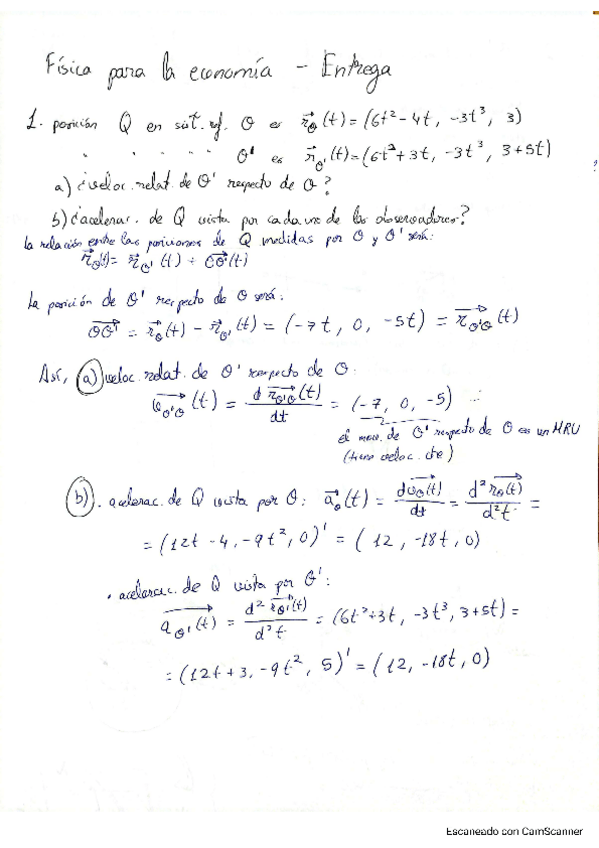 Física para la economía - Entrega
1. posición Q en sist. ref. O es r⃗_O(t) = (6t² - 4t, -3t³, 3)
" " " " O' es r⃗_O'(t) = (6t² + 3t, -3t³, 3+5t)
a) ¿veloc. relat. de O' respecto de O?
b) ¿acelerac. de Q vista por cada uno de los observadores?
La relación entre las posiciones de Q medidas por O y O' será:
r⃗_O(t) = r⃗_O'(t) + OO'(t)
La posición de O' respecto de O será:
OO' = r⃗_O(t) - r⃗_O'(t) = (-7t, 0, -5t) = r⃗_O'O(t)
Así, (a) veloc. relat. de O' respecto de O:
v⃗_O'O(t) = d r⃗_O'O(t) / dt = (-7, 0, -5)
el mov. de O' respecto de O es un MRU
(tiene veloc. cte)
(b). acelerac. de Q vista por O: a⃗_O(t) = dv⃗_O(t)/dt = d² r⃗_O(t)/d²t =
= (12t - 4, -9t², 0)' = (12, -18t, 0)
· acelerac. de Q vista por O':
a⃗_O'(t) = d² r⃗_O'(t)/d²t = (6t²+3t, -3t³, 3+5t) =
= (12t + 3, -9t², 5)' = (12, -18t, 0)
Escaneado con CamScanner